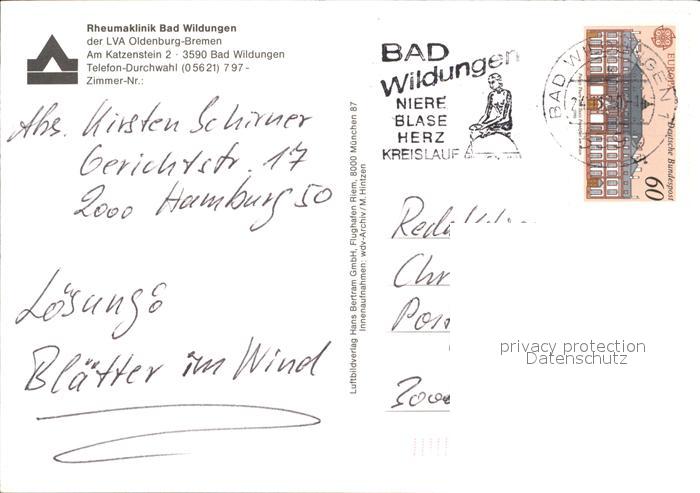 Rheumaklinik Bad Wildungen
der LVA Oldenburg-Bremen
Am Katzenstein 2 · 3590 Bad Wildungen
Telefon-Durchwahl (0 56 21) 7 97 -
Zimmer-Nr.:
Abs. Kirsten Schirner
Gerichtstr. 17
2000 Hamburg 50
Lösung:
Blätter im Wind
Luftbildverlag Hans Bertram GmbH, Flughafen Riem, 8000 München 87
Innenaufnahmen: wdv-Archiv / M. Hintzen
BAD
Wildungen
NIERE
BLASE
HERZ
KREISLAUF
BAD WILDUNGEN 1
EUROPA
Deutsche Bundespost
60
Chr
Pos
3000
privacy protection
Datenschutz